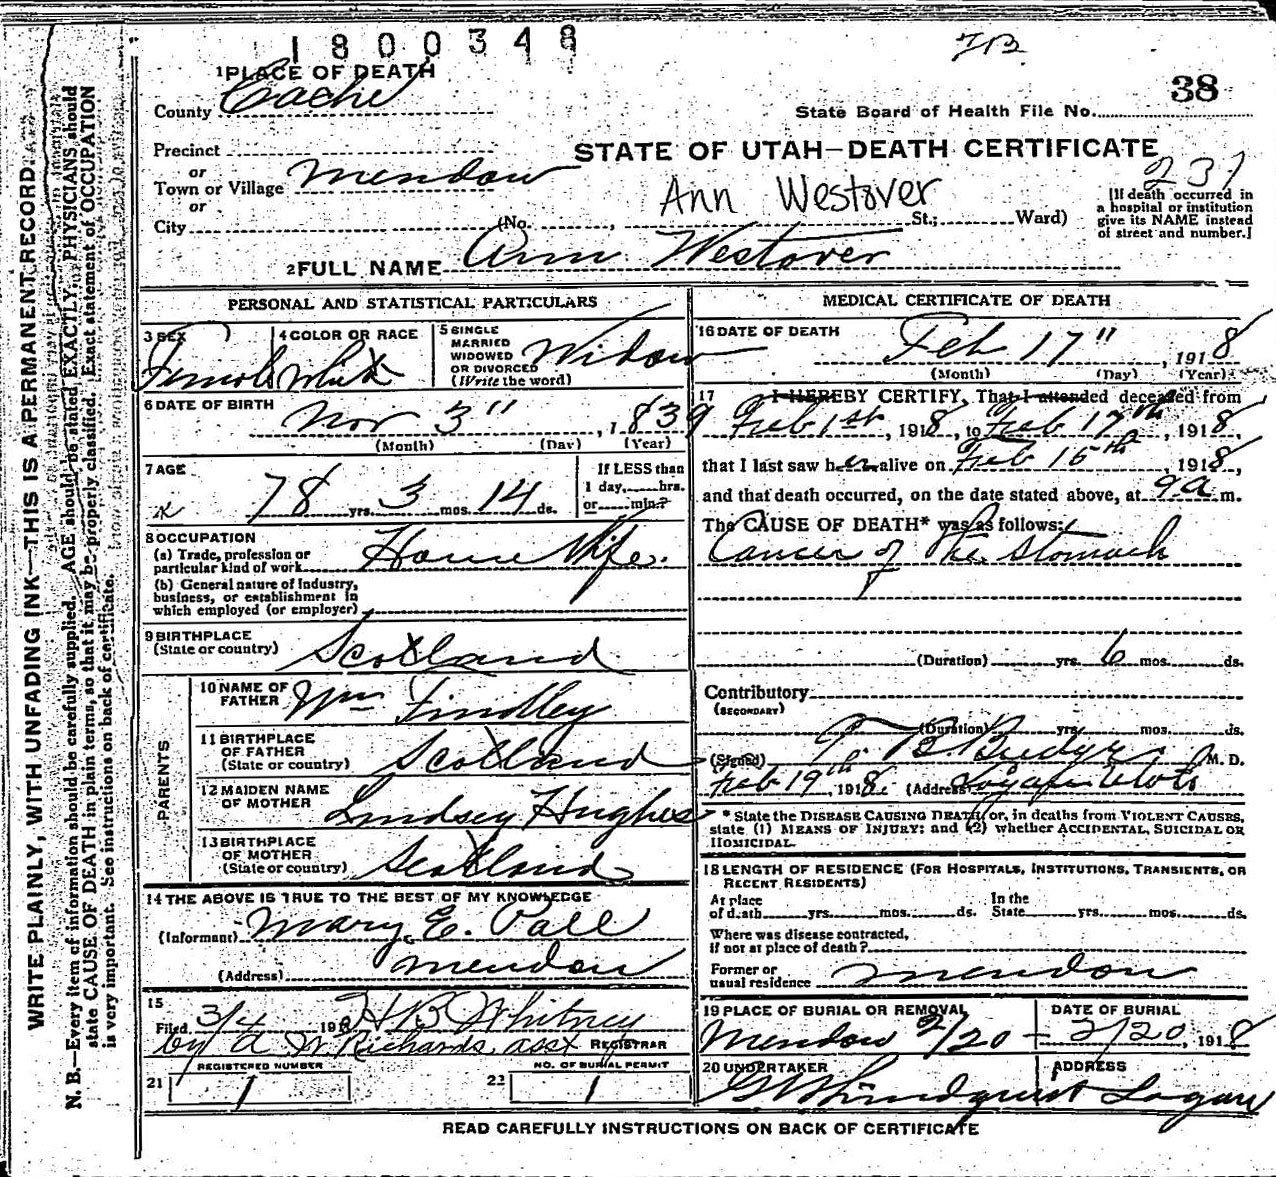 1800348
JB
38
1 PLACE OF DEATH
County Cache
State Board of Health File No.
Precinct
STATE OF UTAH—DEATH CERTIFICATE
or
Town or Village Mendow
231
or
Ann Westover
[If death occurred in
a hospital or institution
give its NAME instead
of street and number.]
City (No. , St.; Ward)
2 FULL NAME Ann Westover
PERSONAL AND STATISTICAL PARTICULARS
3 SEX Female
4 COLOR OR RACE White
5 SINGLE
MARRIED
WIDOWED
OR DIVORCED
(Write the word) Widow
6 DATE OF BIRTH Nov 3" , 1839
(Month) (Day) (Year)
7 AGE
78 yrs. 3 mos. 14 ds.
If LESS than
1 day, hrs.
or min.?
8 OCCUPATION
(a) Trade, profession or
particular kind of work House Wife.
(b) General nature of Industry,
business, or establishment in
which employed (or employer)
9 BIRTHPLACE
(State or country) Scotland
PARENTS
10 NAME OF
FATHER Wm Findley
11 BIRTHPLACE
OF FATHER
(State or country) Scotland
12 MAIDEN NAME
OF MOTHER Lindsey Hughes
13 BIRTHPLACE
OF MOTHER
(State or country) Scotland
14 THE ABOVE IS TRUE TO THE BEST OF MY KNOWLEDGE
(Informant) Mary E. Pall
(Address) Mendow
15
Filed 3/4 1918 H B Whitney
by A W Richards asst REGISTRAR
21 REGISTERED NUMBER 1
22 NO. OF BURIAL PERMIT 1
MEDICAL CERTIFICATE OF DEATH
16 DATE OF DEATH Feb 17" , 1918
(Month) (Day) (Year)
17 I HEREBY CERTIFY, That I attended deceased from
Feb 1st , 1918, to Feb 17th , 1918,
that I last saw her alive on Feb 15th , 1918,
and that death occurred, on the date stated above, at 9 a m.
The CAUSE OF DEATH* was as follows:
Cancer of the stomach
(Duration) yrs. 6 mos. ds.
Contributory
(SECONDARY)
(Duration) yrs. mos. ds.
(Signed) T B Budge M. D.
Feb 19th, 1918. (Address) Logan Utah
* State the DISEASE CAUSING DEATH, or, in deaths from VIOLENT CAUSES,
state (1) MEANS OF INJURY; and (2) whether ACCIDENTAL, SUICIDAL OR
HOMICIDAL.
18 LENGTH OF RESIDENCE (FOR HOSPITALS, INSTITUTIONS, TRANSIENTS, OR
RECENT RESIDENTS)
At place
of death yrs. mos. ds.
In the
State yrs. mos. ds.
Where was disease contracted,
if not at place of death?
Former or
usual residence Mendow
19 PLACE OF BURIAL OR REMOVAL
Mendow 2/20 -
DATE OF BURIAL
2/20, 1918
20 UNDERTAKER
Lindquist
ADDRESS
Logan
READ CAREFULLY INSTRUCTIONS ON BACK OF CERTIFICATE
WRITE PLAINLY, WITH UNFADING INK—THIS IS A PERMANENT RECORD.
N. B.—Every item of information should be carefully supplied. AGE should be stated EXACTLY. PHYSICIANS should
state CAUSE OF DEATH in plain terms, so that it may be properly classified. Exact statement of OCCUPATION
is very important. See instructions on back of certificate.